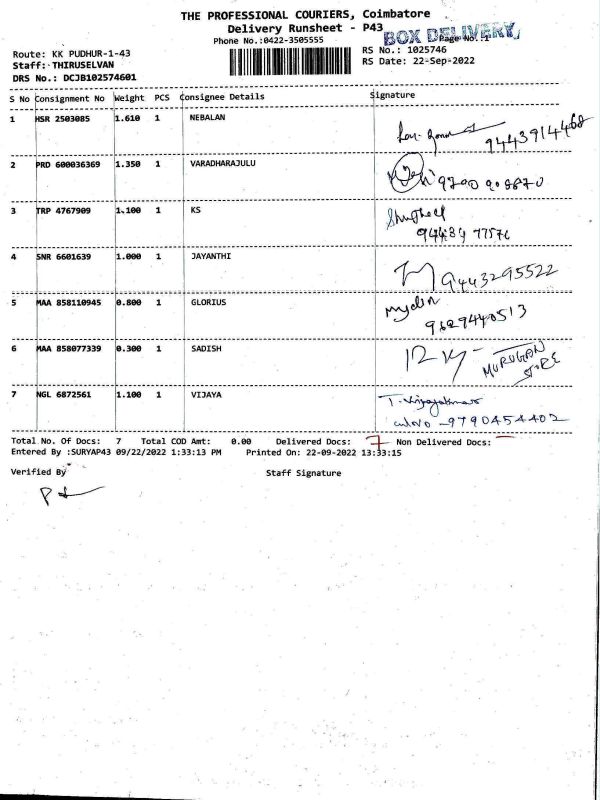 THE PROFESSIONAL COURIERS, Coimbatore
Delivery Runsheet - P43
BOX DELIVERY
Page No.:1
Phone No.:0422-3505555
Route: KK PUDHUR-1-43
RS No.: 1025746
Staff: THIRUSELVAN
RS Date: 22-Sep-2022
DRS No.: DCJB102574601
S No Consignment No Weight PCS Consignee Details Signature
1 HSR 2503085 1.610 1 NEBALAN
9443914468
2 PRD 600036369 1.350 1 VARADHARAJULU
9700 908870
3 TRP 4767909 1.100 1 KS
94434 77576
4 SNR 6601639 1.000 1 JAYANTHI
9443295522
5 MAA 858110945 0.800 1 GLORIUS
9629440513
6 MAA 858077339 0.300 1 SADISH
MURUGAN
STORE
7 NGL 6872561 1.100 1 VIJAYA
T. Vijayakumar
9790454402
Total No. Of Docs: 7 Total COD Amt: 0.00 Delivered Docs: 7 Non Delivered Docs: —
Entered By :SURYAP43 09/22/2022 1:33:13 PM Printed On: 22-09-2022 13:33:15
Verified By Staff Signature